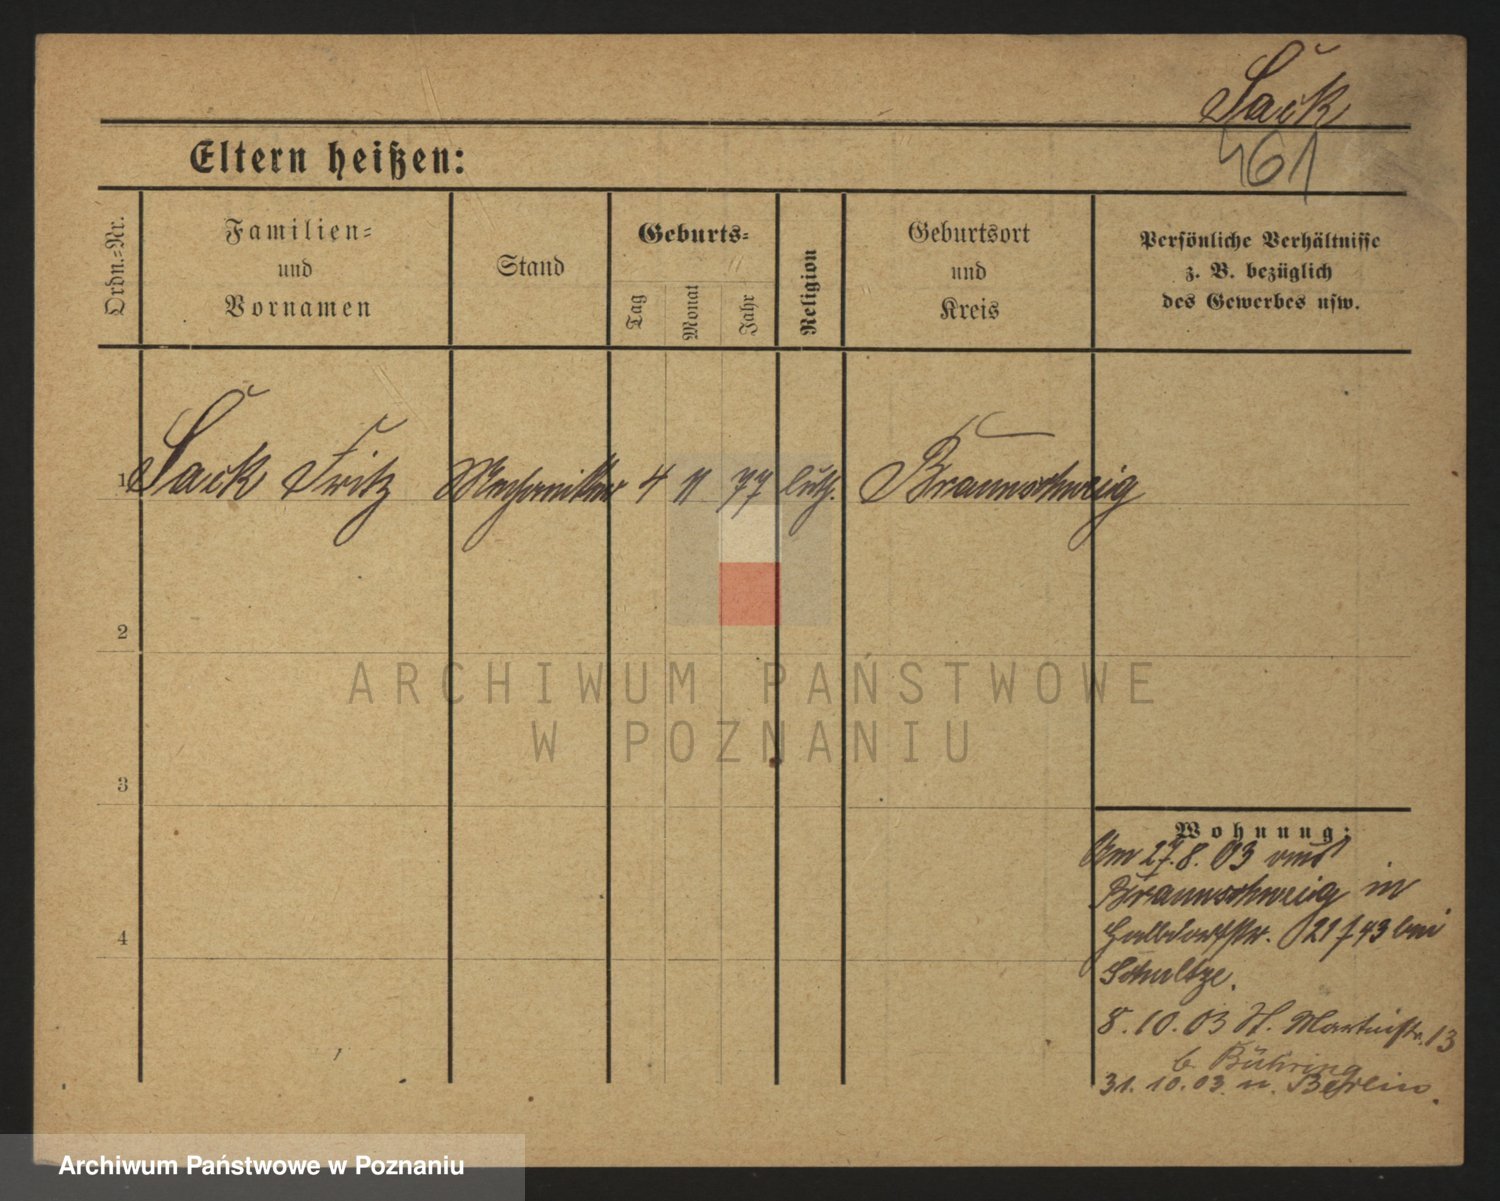 Sack
461
Eltern heißen:
Ordn.-Nr.
Familien-
und
Vornamen
Stand
Geburts-
Tag
Monat
Jahr
Religion
Geburtsort
und
Kreis
Persönliche Verhältnisse
z. B. bezüglich
des Gewerbes usw.
1 Sack Fritz Mechaniker 4 11 77 luth. Braunschweig
2
3
4
Wohnung:
Am 27.8.03 aus
Braunschweig in
Halbdorfstr. 21 bei
Schultze.
8.10.03 St. Martinstr. 13
b. Bühring
31.10.03. n. Berlin.
ARCHIWUM PAŃSTWOWE
W POZNANIU
Archiwum Państwowe w Poznaniu